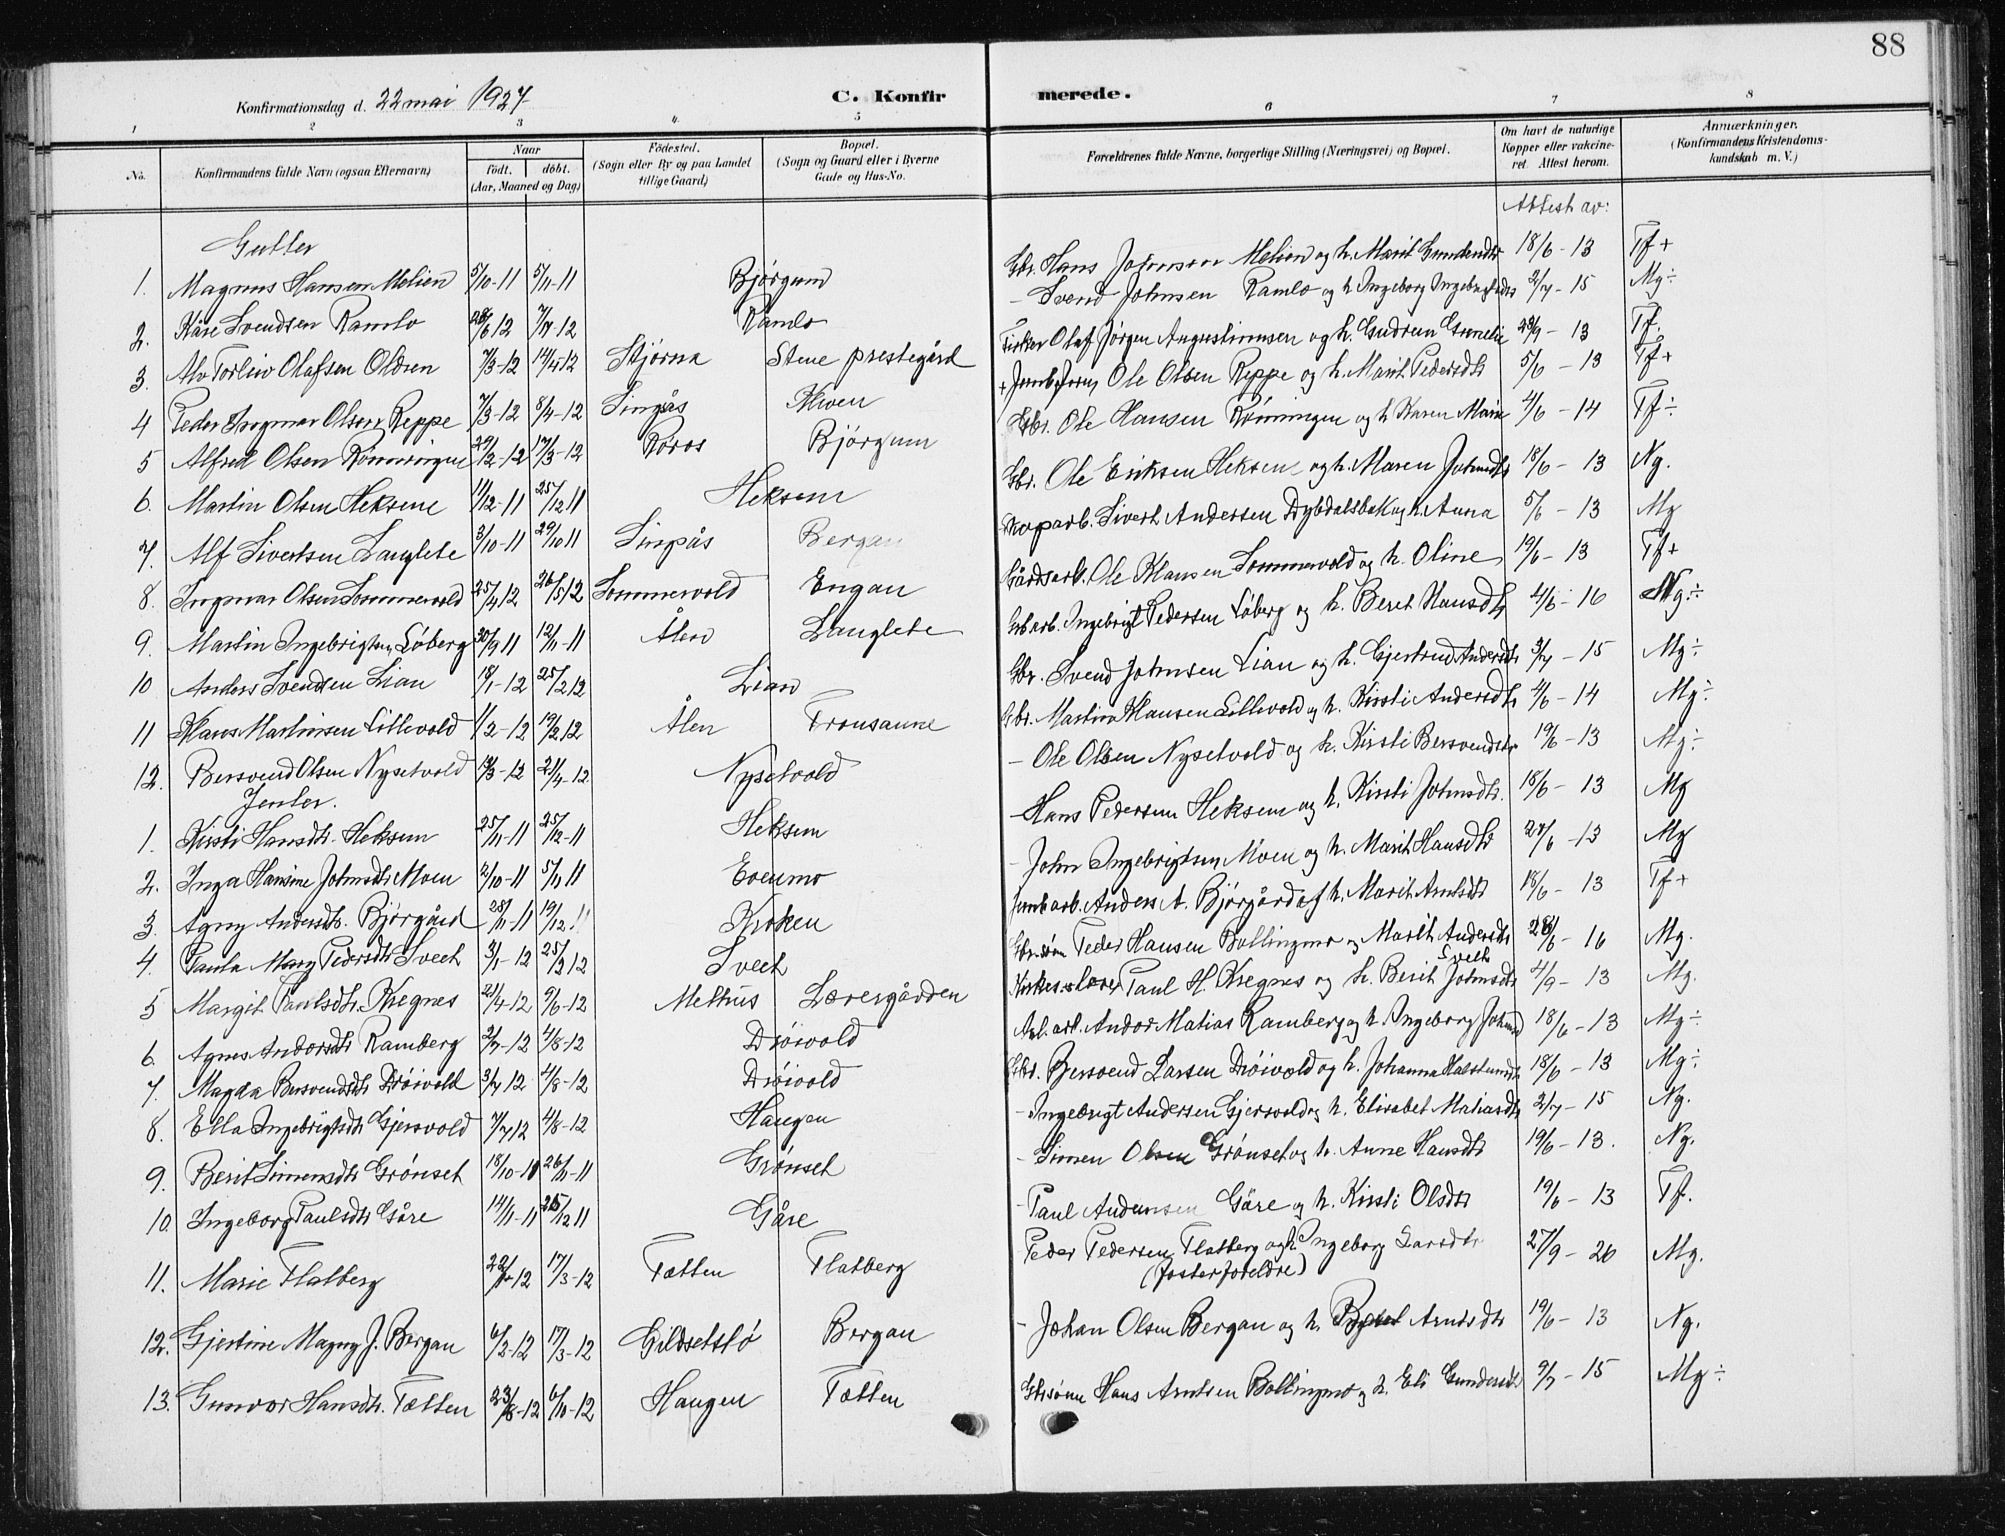 88
Konfirmationsdag d. 22 mai 1927
C. Konfirmerede.
1 2 3 4 5 6 7 8
No.
Konfirmandens fulde Navn (ogsaa Efternavn)
Naar
født. døbt.
(Aar, Maaned og Dag)
Fødested.
(Sogn eller By og paa Landet
tillige Gaard)
Bopæl.
(Sogn og Gaard eller i Byerne
Gade og Hus-No.
Forældrenes fulde Navne, borgerlige Stilling (Næringsvei) og Bopæl.
Om havt de naturlige
Kopper eller vakcine-
ret. Attest herom.
Anmærkninger.
(Konfirmandens Kristendoms-
kundskab m. V.)
Attest av:
Gutter
1. Magnus Hansen Melien 5/10-11 5/11-11 Bjørgum Gbr. Hans Johnsen Melien og h. Marit Gundersdtr 18/6-13 Tf+
2. Kåre Svendsen Ramlo 28/6 12 7/7-12 Ramlo - Svend Johnsen Ramlo og h. Ingeborg Ingebrigtsdtr 2/7-15 Mg÷
3. Alv Torleiv Olafsen Oldren 7/3-12 14/4 12 Stjørna Stene prestegård Fisker Olaf Jørgen Augustinusen og h. Gudrun 28/9-13 Tf.
4 Peder Ingmar Olsen Reppe 7/3-12 8/4-12 Singsås Moen Ole Olsen Reppe og h. Marit Pedersdtr 5/6-13 Tf+
5 Alfred Olsen Rønningen 29/2-12 17/3-12 Røros Bjørgum Gbr. Ole Hansen Rønningen og h. Karen Marie 4/6-14 Tf÷
6. Martin Olsen Heksem 11/12-11 25/12 11 Heksem Gbr. Ole Eriksen Heksem og h. Maren Johnsdtr 18/6-13 Ng.
7. Alf Sivertsen Langlete 3/10-11 29/10 11 Singsås Bergan Skoparb. Sivert Andersen Dybdalsbak og h. Anna 5/6-13 Mg
8. Ingvar Olsen Sommervold 25/4 12 26/5 12 Sommervold Engan Gårdsarb. Ole Hansen Sommervold og h. Oline 19/6-13 Tf+
9. Martin Ingebrigtsen Løberg 30/9 11 12/11-11 Ålen Langlete Ingebrigt Pedersen Løberg og h. Berit Hansdtr 4/6-16 Mg÷
10 Anders Svendsen Lian 18/1-12 25/2 12 Lian Gbr. Svend Johnsen Lian og h. Gjertrud Andersdtr 3/7-15 Mg÷
11 Hans Martinsen Lillevold 11/2-12 19/2 12 Ålen Tronsaune Gbr. Martin Hansen Lillevold og h. Kirsti Andersdtr 4/6-14 Mg÷
12. Bersvend Olsen Nysetvold 18/3-12 21/4-12 Nysetvold - Ole Olsen Nysetvold og h. Kirsti Bersvendsdtr 19/6-13 Mg÷
Jenter.
1. Kirsti Hansdtr. Heksem 25/11-11 25/12-11 Heksem - Hans Pedersen Heksem og h. Kirsti Johnsdtr. 18/6-13 Mg
2. Inga Hansine Johnsdtr Moen 2/10-11 5/11 11 Evenmo - John Ingebrigtsen Moen og h. Marit Hansdtr 27/6-13 Mg
3. Agny Andersdtr. Bjørgård 28/11-11 19/12 11 Kroken Jernb arb. Anders A. Bjørgård og h. Marit Arntsdtr 18/6-13 Tf+
4. Paula Mary Pedersdtr Svect 3/1-12 25/2 12 Svect Gbr.søn Peder Hansen Bollingmo og Marit Andersdtr Svect 28/6-16 Mg.
5 Margit Paulsdtr. Kregnes 21/4-12 9/6-12 Melhus Lærergården Kirkes. og lærer Paul H. Kregnes og h. Berit Johnsdtr 4/9-13 Mg.
6. Agnes Andorsdtr Ramberg 2/7-12 4/8-12 Drøivold Anl. arb. Andor Matias Ramberg og h. Ingeborg Johnsd 18/6-13 Mg÷
7. Magda Bersvendsdtr Drøivold 3/7 12 4/8-12 Drøivold Gbr. Bersvend Larsen Drøivold og h. Johanna Halstensdtr 18/6-13 Mg÷
8. Ella Ingebrigtsdtr Gjersvold 7/7 12 4/8-12 Haugen - Ingebrigt Andersen Gjersvold og h. Elisabet Matiasdtr 2/7-15 Ng.
9. Berit Simensdtr Grønset 18/10-11 26/11-11 Grønset - Simen Olsen Grønset og h. Anne Hansdtr 19/6-13. Ng.
10. Ingeborg Paulsdtr Gåre 14/11-11 26/12 11 Gåre - Paul Andersen Gåre og h. Kirsti Olsdtr 19/6-13 Tf.
11. Marie Flatberg 17/3-12 Tætten Flatberg Peder Pedersen Flatberg og h. Ingeborg Larsdtr 27/9-20 Mg.
(fosterforeldre)
12. Gjertine Magny J. Bergan 6/2-12 17/3-12 Gildsetslø Bergan - Johan Olsen Bergan og h. Arntsdtr 19/6-13 Ng.
13. Gunvor Hansdtr. Tætten 23/8-12 6/10-12 Haugen Tætten Gbrsønn Hans Arntsen Bollingmo og h. Eli Gundersdtr 9/7-15 Mg÷